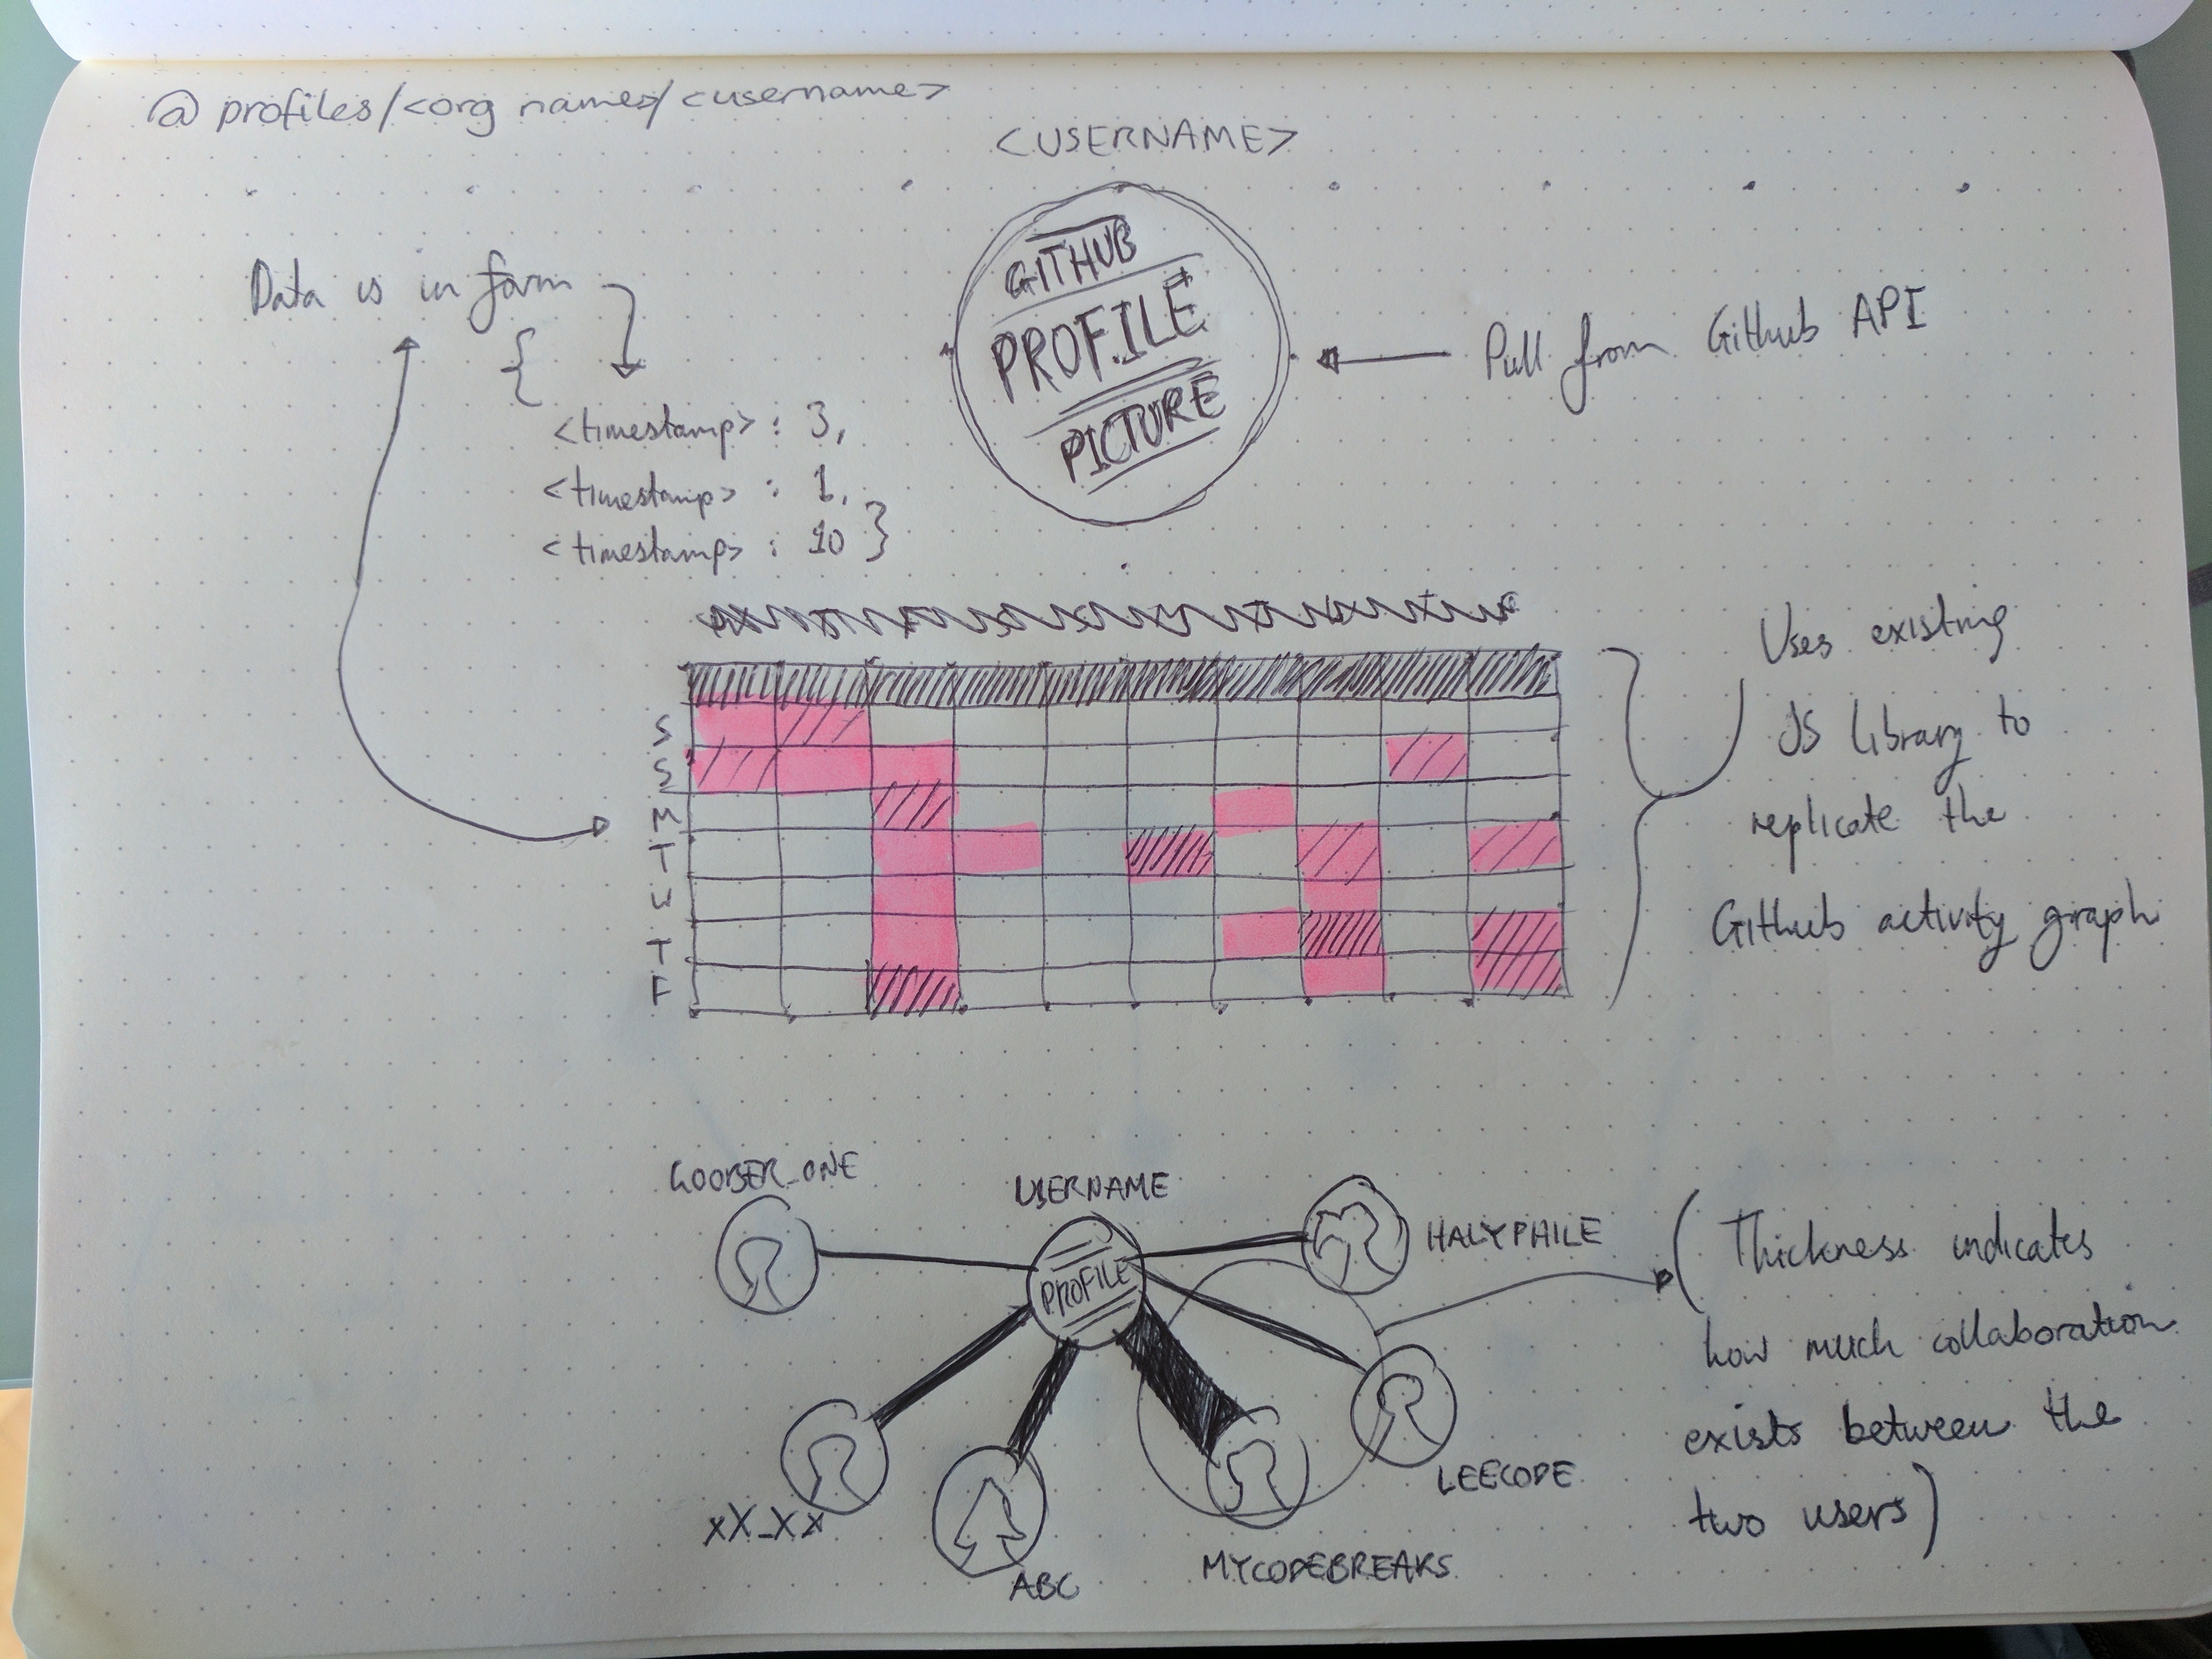 @ profiles/<org name>/<username>
<USERNAME>
GITHUB
PROFILE
PICTURE
Pull from Github API
Data is in form
{
<timestamp> : 3,
<timestamp> : 1,
<timestamp> : 10 }
S
S
M
T
W
T
F
Uses existing
JS library to
replicate the
Github activity graph
GOOBER_ONE
USERNAME
PROFILE
HALYPHILE
LEECODE
MYCODEBREAKS
ABC
xX_Xx
(Thickness indicates
how much collaboration
exists between the
two users)